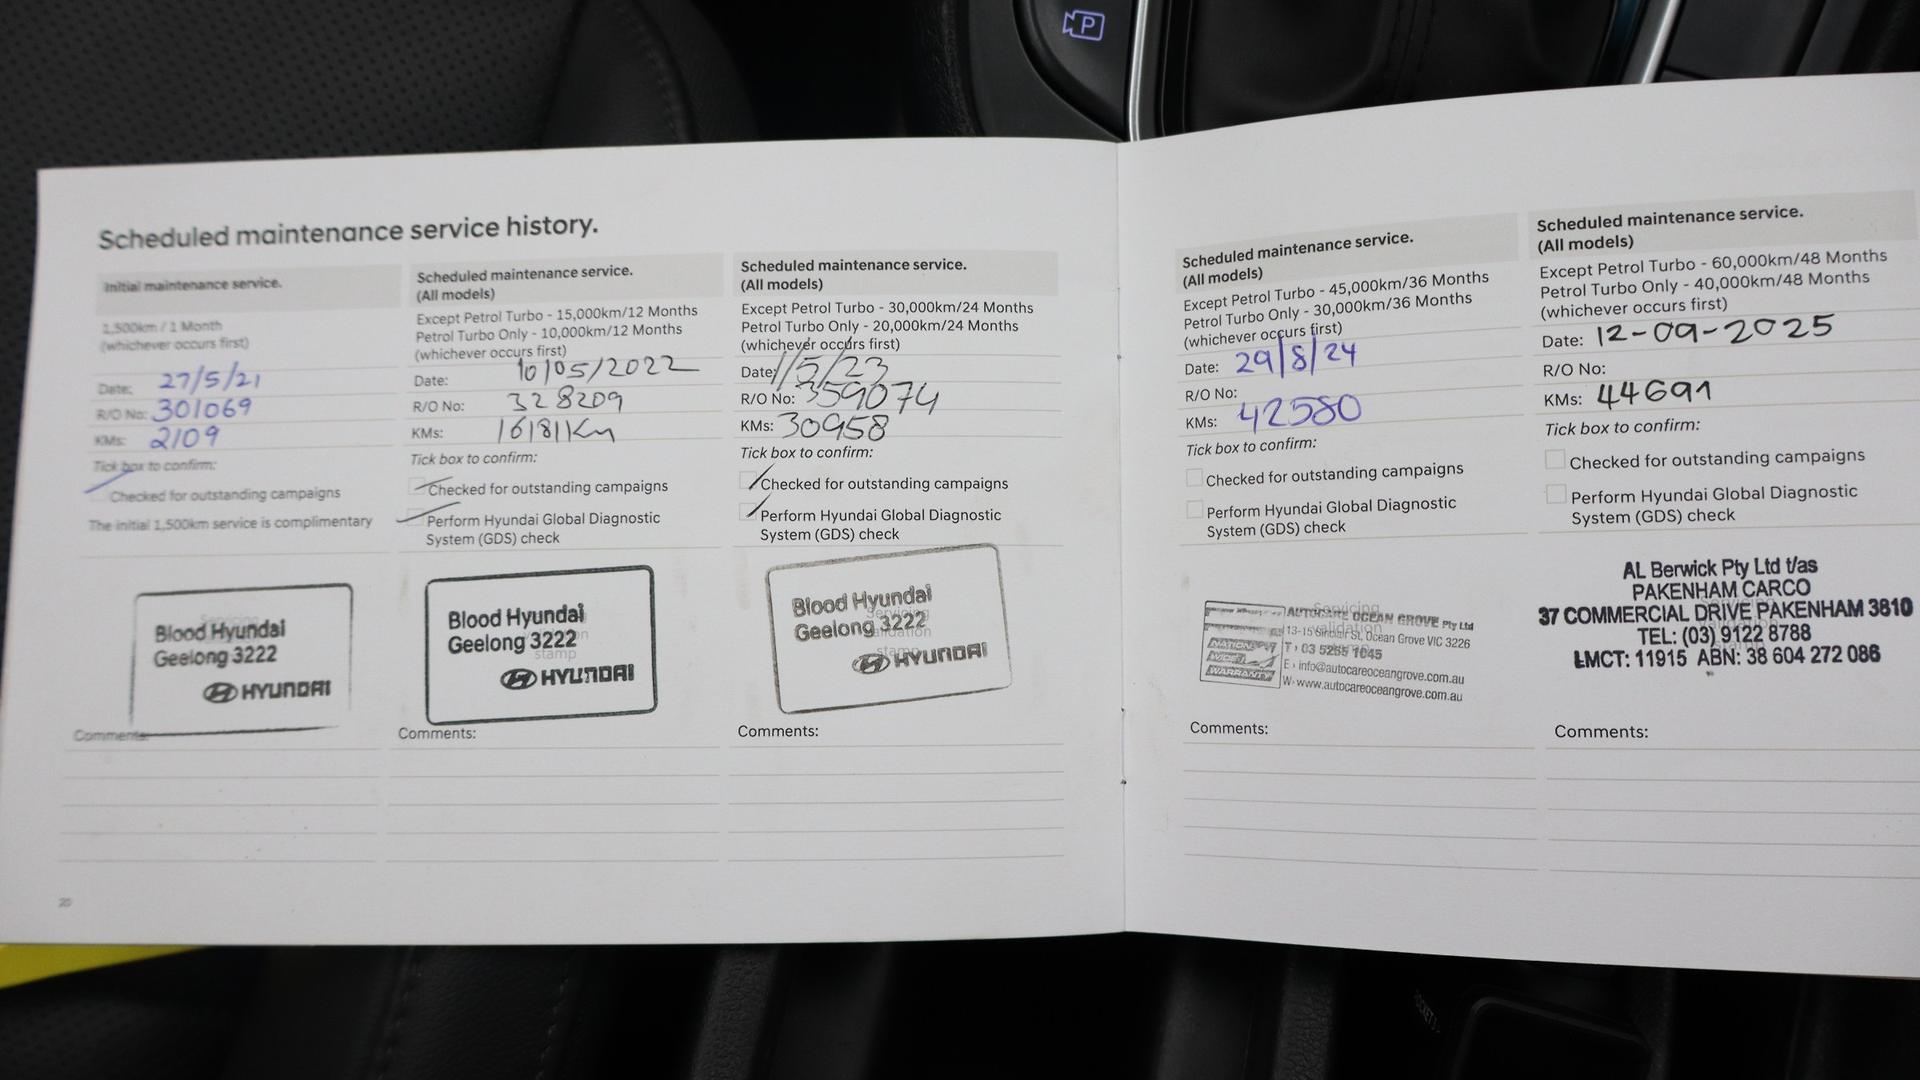 P
Scheduled maintenance service history.
Initial maintenance service.
1,500km / 1 Month
(whichever occurs first)
Date: 27/5/21
R/O No: 301069
KMs: 2109
Tick box to confirm:
Checked for outstanding campaigns
The initial 1,500km service is complimentary
Blood Hyundai
Geelong 3222
HYUNDAI
Comments:
Scheduled maintenance service.
(All models)
Except Petrol Turbo - 15,000km/12 Months
Petrol Turbo Only - 10,000km/12 Months
(whichever occurs first)
Date: 10/05/2022
R/O No: 328209
KMs: 16181Km
Tick box to confirm:
Checked for outstanding campaigns
Perform Hyundai Global Diagnostic
System (GDS) check
Blood Hyundai
Geelong 3222
stamp
HYUNDAI
Comments:
Scheduled maintenance service.
(All models)
Except Petrol Turbo - 30,000km/24 Months
Petrol Turbo Only - 20,000km/24 Months
(whichever occurs first)
Date: 1/5/23
R/O No: 359074
KMs: 30958
Tick box to confirm:
Checked for outstanding campaigns
Perform Hyundai Global Diagnostic
System (GDS) check
Blood Hyundai
Servicing
Geelong 3222
validation
stamp
HYUNDAI
Comments:
Scheduled maintenance service.
(All models)
Except Petrol Turbo - 45,000km/36 Months
Petrol Turbo Only - 30,000km/36 Months
(whichever occurs first)
Date: 29/8/24
R/O No:
KMs: 42580
Tick box to confirm:
Checked for outstanding campaigns
Perform Hyundai Global Diagnostic
System (GDS) check
Servicing
validation
AUTOCARE OCEAN GROVE Pty Ltd
13-15 Sinclair St, Ocean Grove VIC 3226
T > 03 5255 1045
E > info@autocareoceangrove.com.au
W > www.autocareoceangrove.com.au
NATION
WIDE
WARRANTY
Comments:
Scheduled maintenance service.
(All models)
Except Petrol Turbo - 60,000km/48 Months
Petrol Turbo Only - 40,000km/48 Months
(whichever occurs first)
Date: 12-09-2025
R/O No:
KMs: 44691
Tick box to confirm:
Checked for outstanding campaigns
Perform Hyundai Global Diagnostic
System (GDS) check
AL Berwick Pty Ltd t/as
PAKENHAM CARCO
37 COMMERCIAL DRIVE PAKENHAM 3810
TEL: (03) 9122 8788
LMCT: 11915 ABN: 38 604 272 086
Comments: